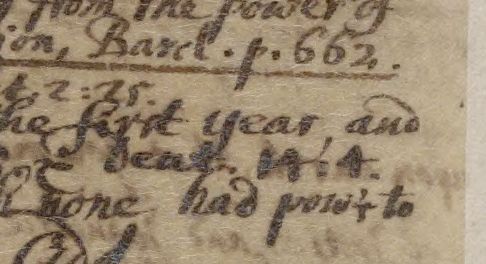 from the power of
ion, Basel. p. 662.
t. 2:25.
he first year, and
deut. 14:4.
none had power to